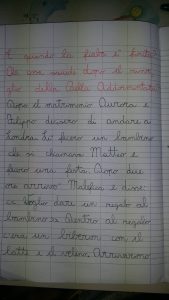 E quando la fiaba è finita
che cosa succede dopo il risve
glio della Bella Addormentata
Dopo il matrimonio Aurora e
Filippo decisero di andare a
Londra. Lì fecero un bambino
che si chiamava Matteo e
fecero una festa. Dopo due
ore arrivò Malefica e disse:
voglio dare un regalo al
bambino. Dentro al regalo
c'era un biberon con il
latte e il veleno. Arrivarono